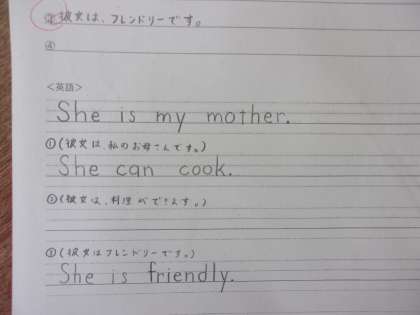 ③ 彼女は、フレンドリーです。
④
<英語>
She is my mother.
①(彼女は、私のお母さんです。)
She can cook.
②(彼女は、料理ができます。)
③(彼女はフレンドリーです。)
She is friendly.